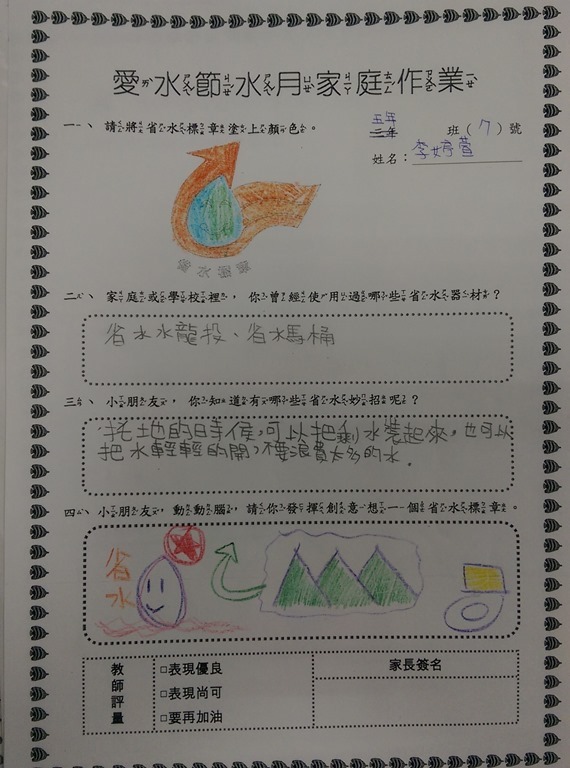 愛水節水月家庭作業
一、請將省水標章塗上顏色。
五年
三年 班(7)號
姓名：李婷萱
省水標章
二、家庭或學校裡，你曾經使用過哪些省水器材？
省水水龍投、省水馬桶
三、小朋友，你知道有哪些省水妙招呢？
托地的時侯，可以把剩水裝起來，也可以
把水輕輕的開，不要浪費太多的水。
四、小朋友，動動腦，請你發揮創意想一個省水標章。
省水
教師評量
□表現優良
□表現尚可
□要再加油
家長簽名